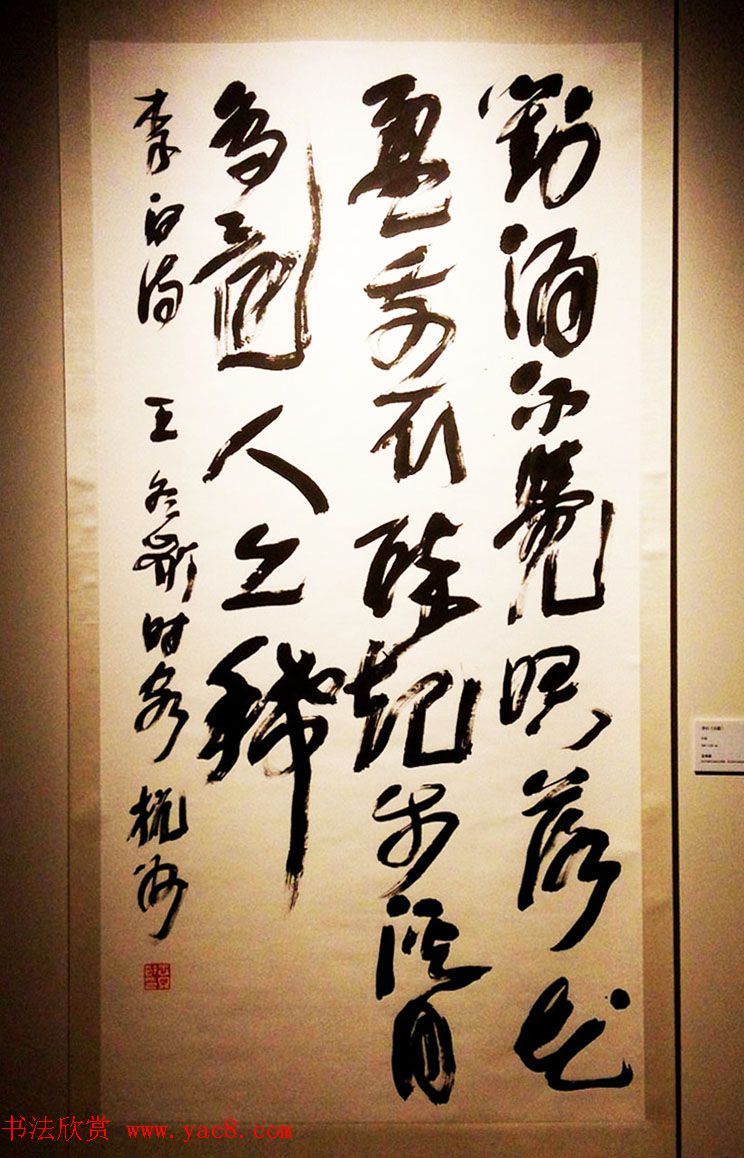 對酒不覺暝落花
盈我衣醉起步溪月
鳥還人亦稀
李白詩 王冬齡时客杭州
书法欣赏 www.yac8.com